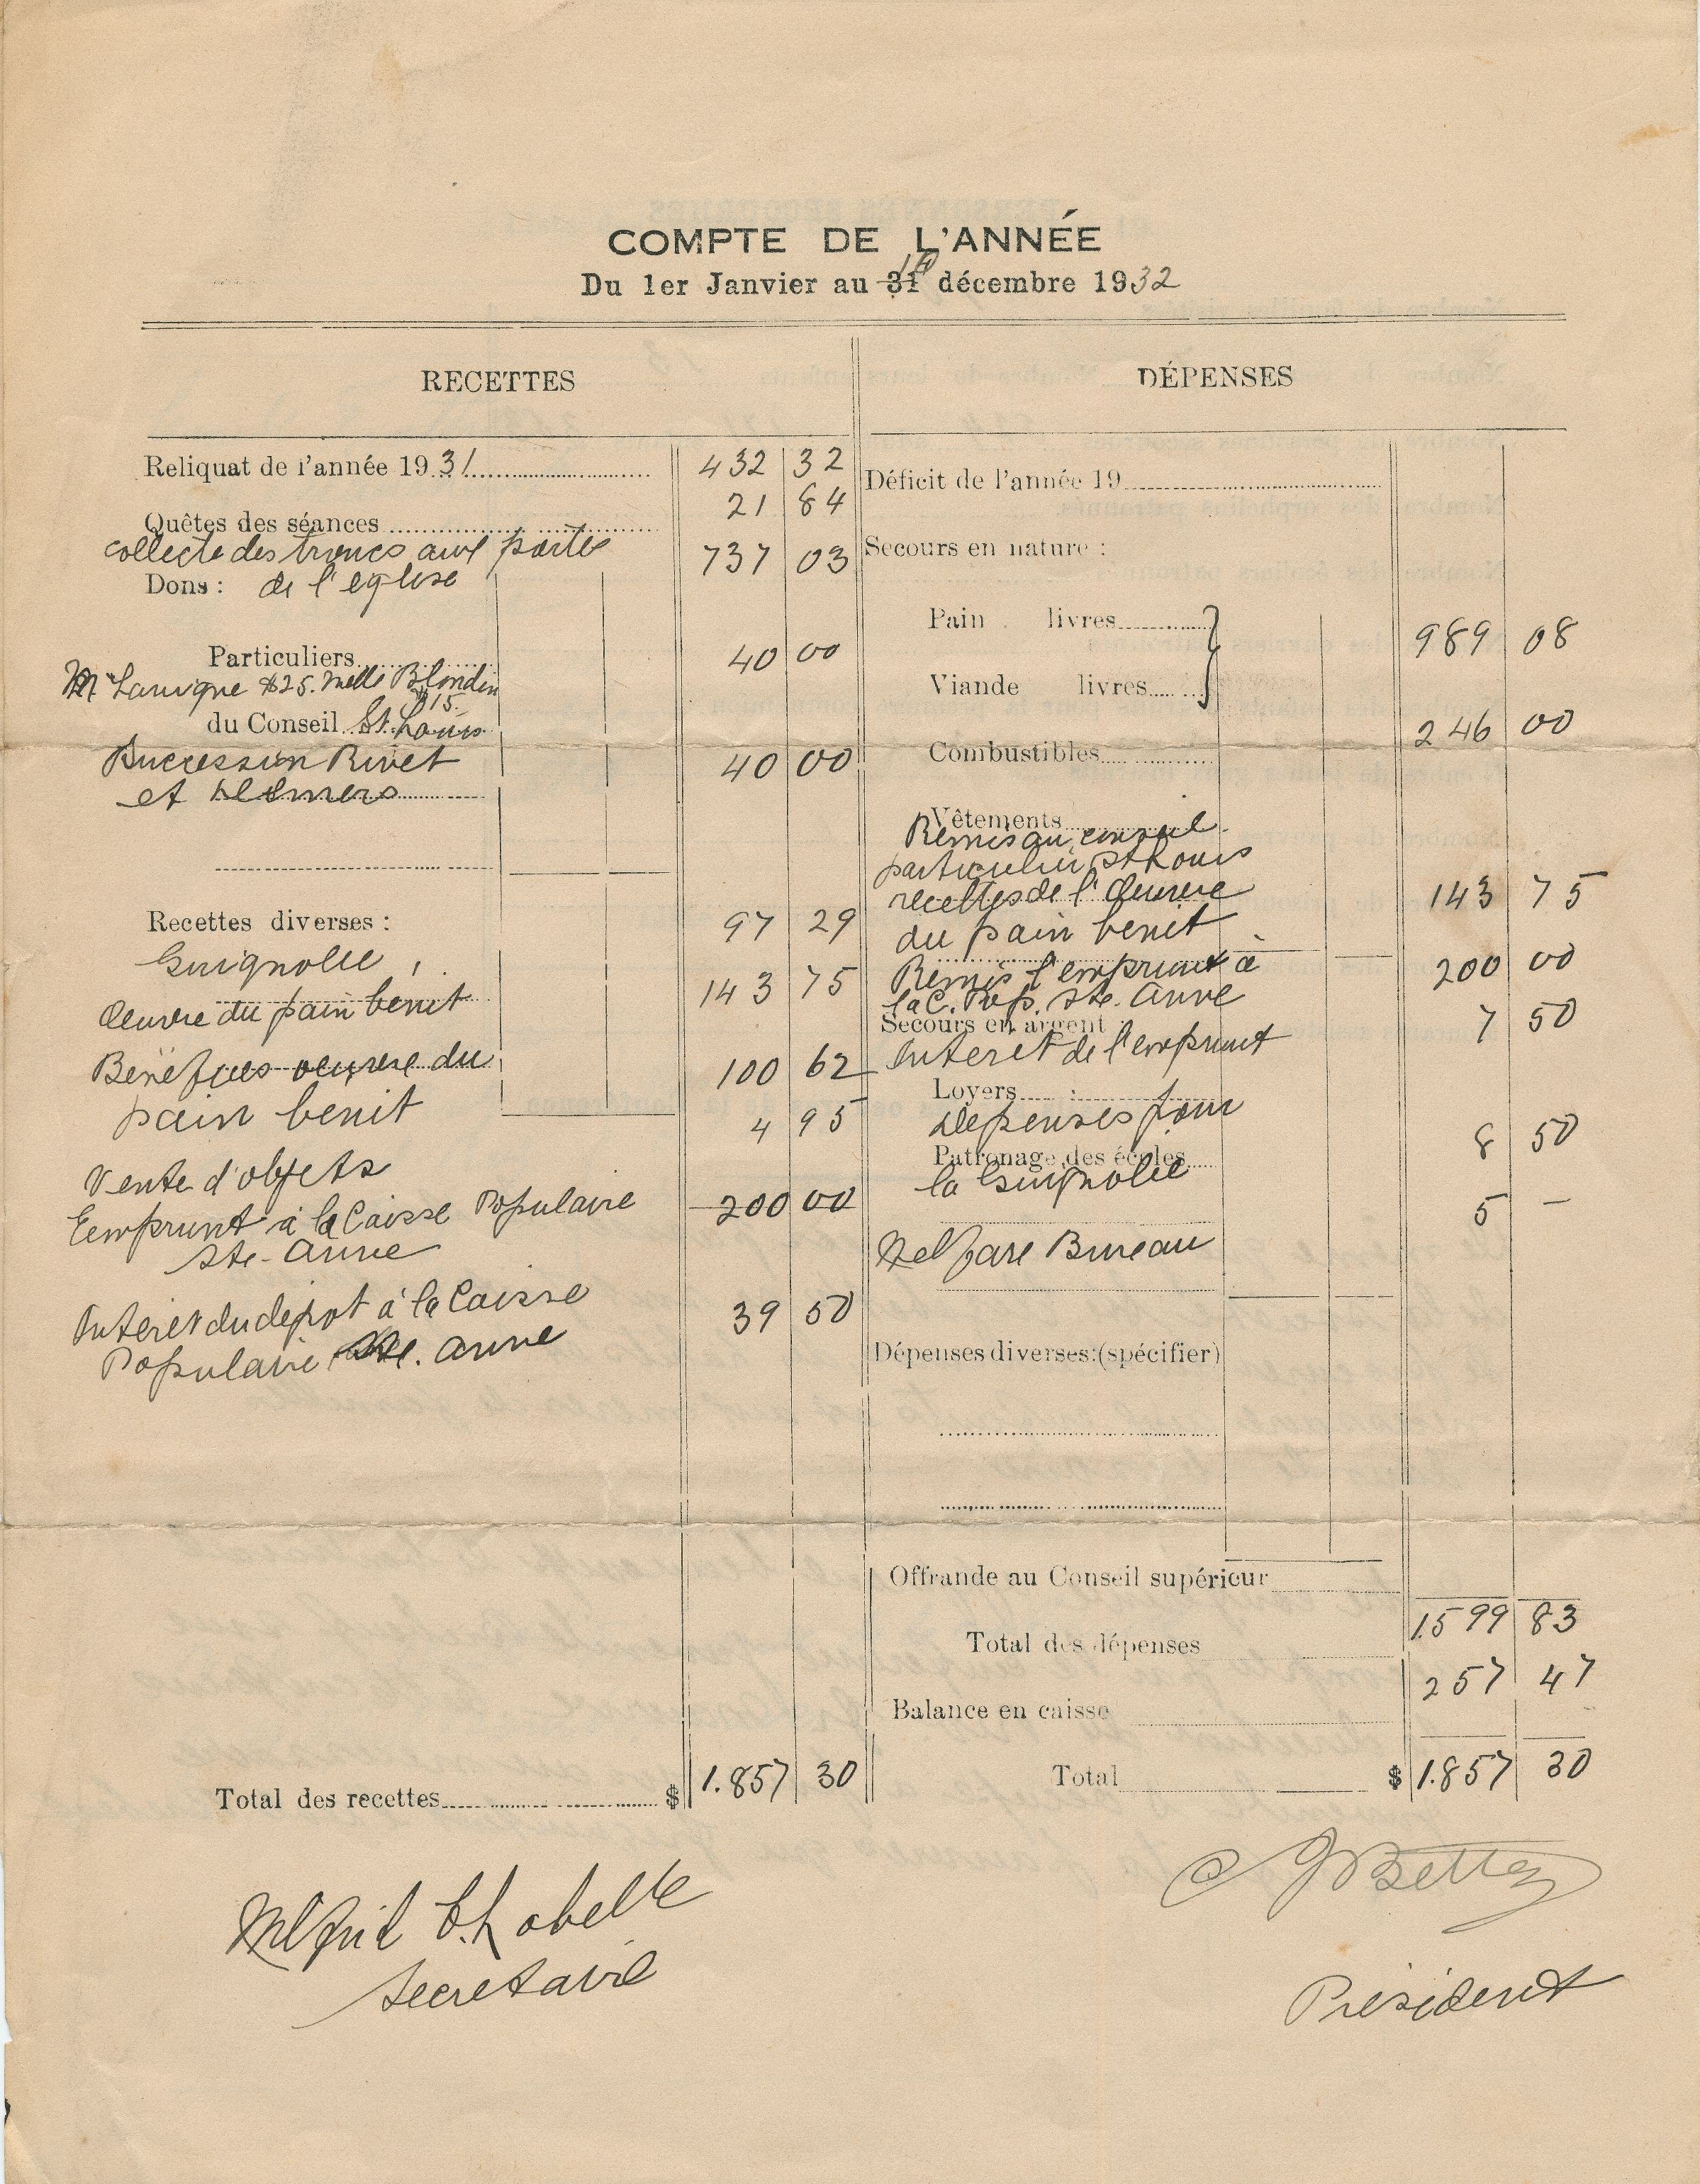 COMPTE DE L'ANNÉE
Du 1er Janvier au 31 décembre 1932
RECETTES
Reliquat de l'année 1931 432 32
21 84
Quêtes des séances
collecte des troncs aux portes 737 03
Dons: de l'eglise
Particuliers 40 00
Mr Lavigne $25. Melle Blondin
$15.
du Conseil St. Louis
Succession Rivet 40 00
et
Recettes diverses: 97 29
Guignolee
Oeuvre du pain benit 143 75
Benefices oeuvre du 100 62
pain benit
4 95
Vente d'objets
Emprunt à la Caisse Populaire 200 00
Ste-Anne
Interet du depot à la Caisse 39 50
Populaire Ste. Anne
Total des recettes $ 1.857 30
DÉPENSES
Déficit de l'année 19
Secours en nature:
Pain livres 989 08
Viande livres
Combustibles 246 00
Vêtements
Remis au conseil
particulier St Louis
recettes de l'Oeuvre 143 75
du pain benit
Remis l'emprunt à 200 00
la C. Pop. Ste. Anne
Secours en argent 7 50
Interet de l'emprunt
Loyers
Depenses pour
Patronage des écoles 8 50
la Guignolee
5 —
Welfare Bureau
Dépenses diverses:(spécifier)
Offrande au Conseil supérieur
Total des dépenses 1599 83
Balance en caisse 257 47
Total $ 1.857 30
Wilfrid C. Labelle
Secretaire
Président